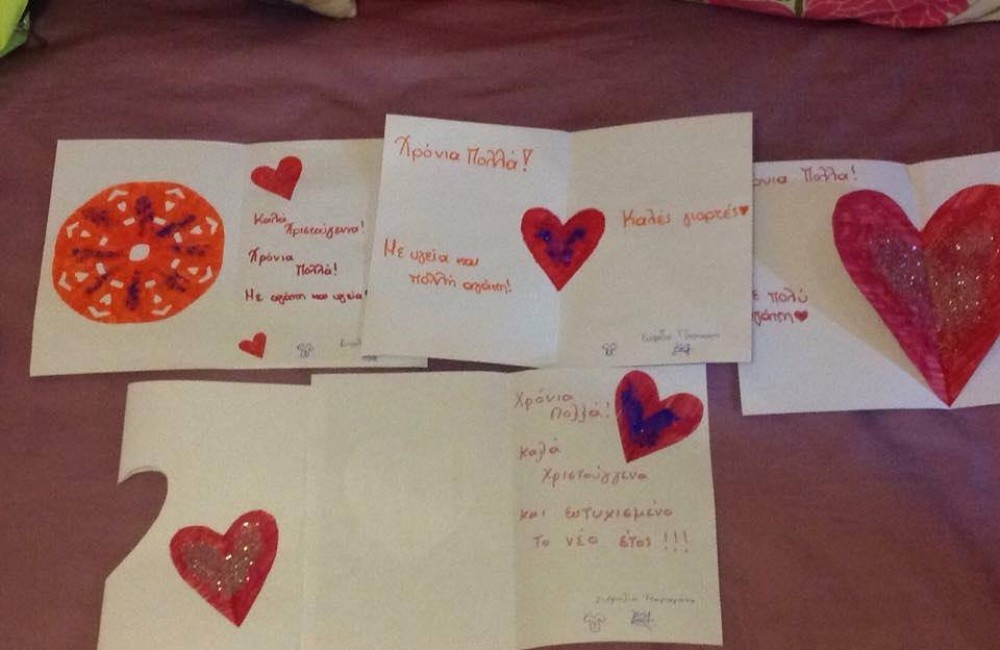 Καλά
Χριστούγεννα!
Χρόνια
Πολλά!
Με αγάπη και υγεία!
Χρόνια Πολλά!
Με υγεία και
πολλή αγάπη!
Καλές γιορτές
Πολλά!
πολύ
Χρόνια
Πολλά!
Καλά
Χριστούγγενα
και ευτυχισμένο
το νέο έτος!!!